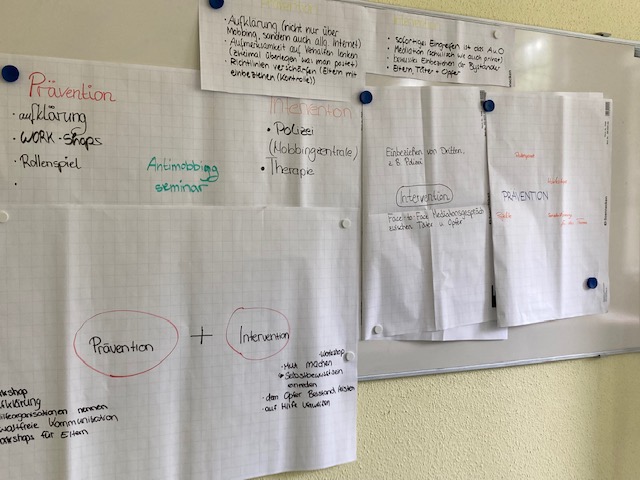 · Aufklärung (nicht nur über
Mobbing, sondern auch allg. Internet)
· Aufmerksamkeit auf Verhalten lenken
(zweimal überlegen was man postet)
· Richtlinien verschärfen (Eltern mit
einbeziehen (Kontrolle))
· sofortiges Eingreifen ist das A u. O
· Mediation (schulisch wie auch privat)
Einbeziehen der Bystander
· Eltern, Täter + Opfer
Prävention
· aufklärung
· WORK-Shops
· Rollenspiel
·
Antimobbigg
seminar
Intervention
• Polizei
(Mobbingzentrale)
• Therapie
Einbeziehen von Dritten,
z.B. Polizei
Intervention
Face-to-Face Mediationsgespräch
zwischen Täter u. Opfer
PRÄVENTION
Prävention + Intervention
Workshop
· Mut machen
Selbstbewusstsein
· dem Opfer Beistand leisten
· auf Hilfe verweisen
rkshop
fklärung
ilfeorganisationen nennen
waltfreie Kommunikation
orkshops für Eltern